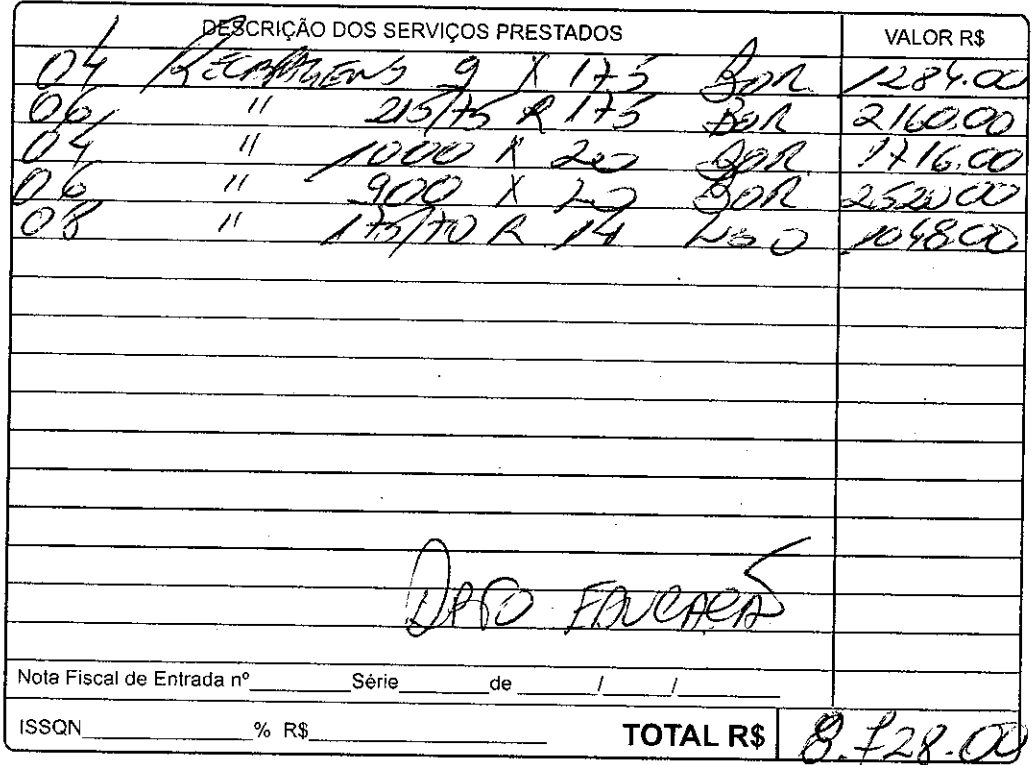 DESCRIÇÃO DOS SERVIÇOS PRESTADOS VALOR R$
04 RECAPAGENS 9 X 175 BOR 1284.00
06 " 215/75 R 175 BOR 2160.00
04 " 1000 R 20 BOR 1716.00
06 " 900 X 20 BOR 2520.00
08 " 175/70 R 14 1048.00
DPTO EDUCAÇÃO
Nota Fiscal de Entrada nº Série de / /
ISSQN % R$ TOTAL R$ 8.728.00